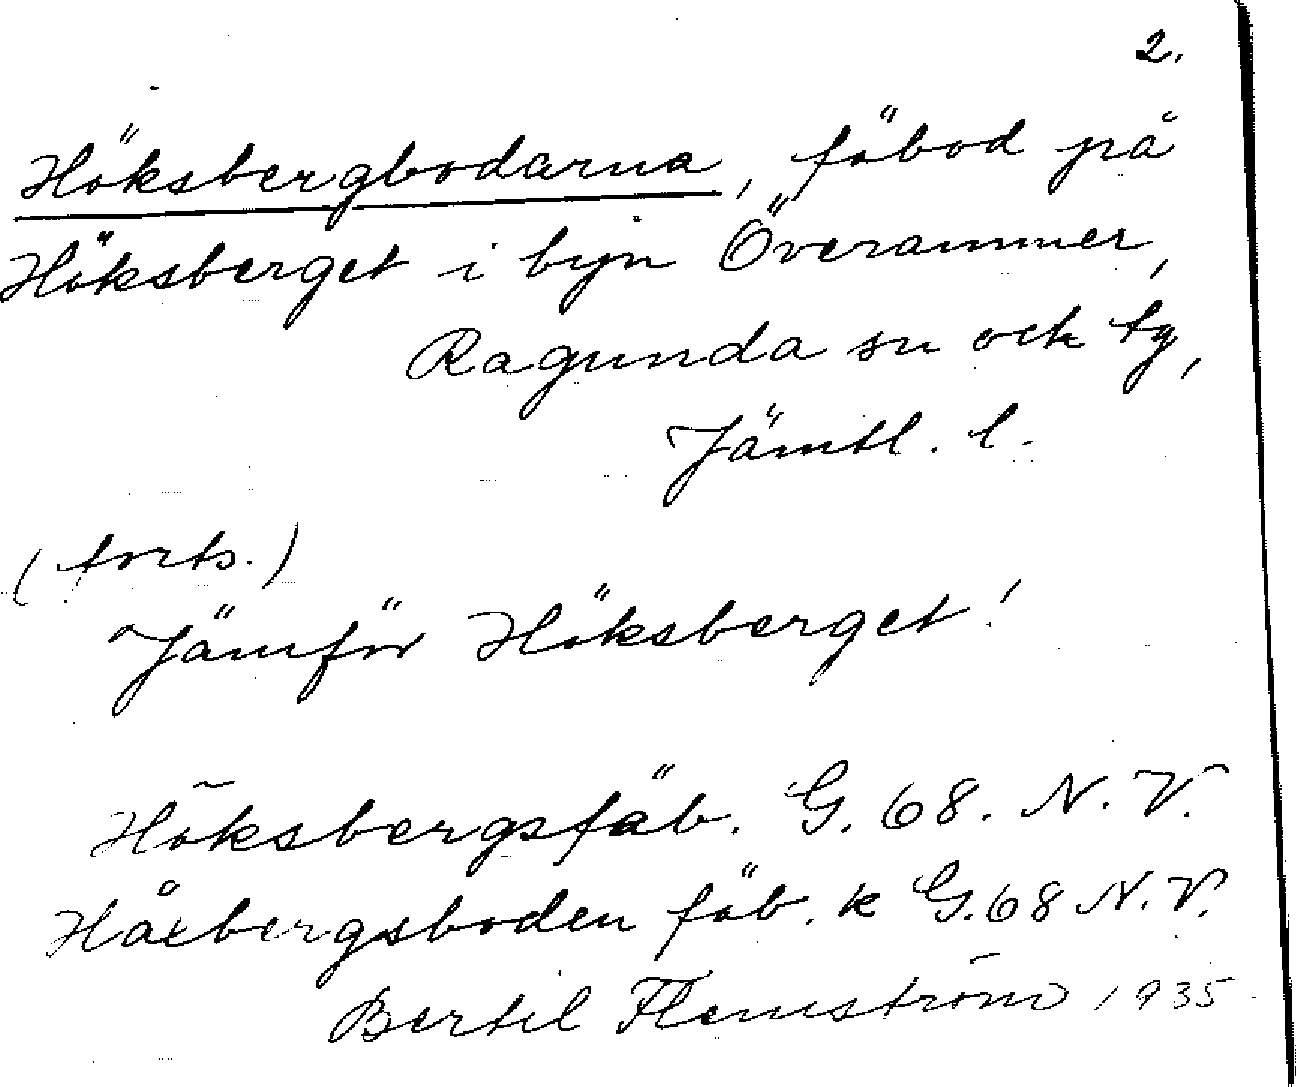 2.
Höksbergbodarna, fäbod på
Höksberget i byn Överammer,
Ragunda sn ock tg,
Jämtl. l.
(forts.)
Jämför Höksberget!
Höksbergsfäb. G. 68. N. V.
Håxbergsboden fäb. k G. 68 N. V.
Bertil Flemström 1935